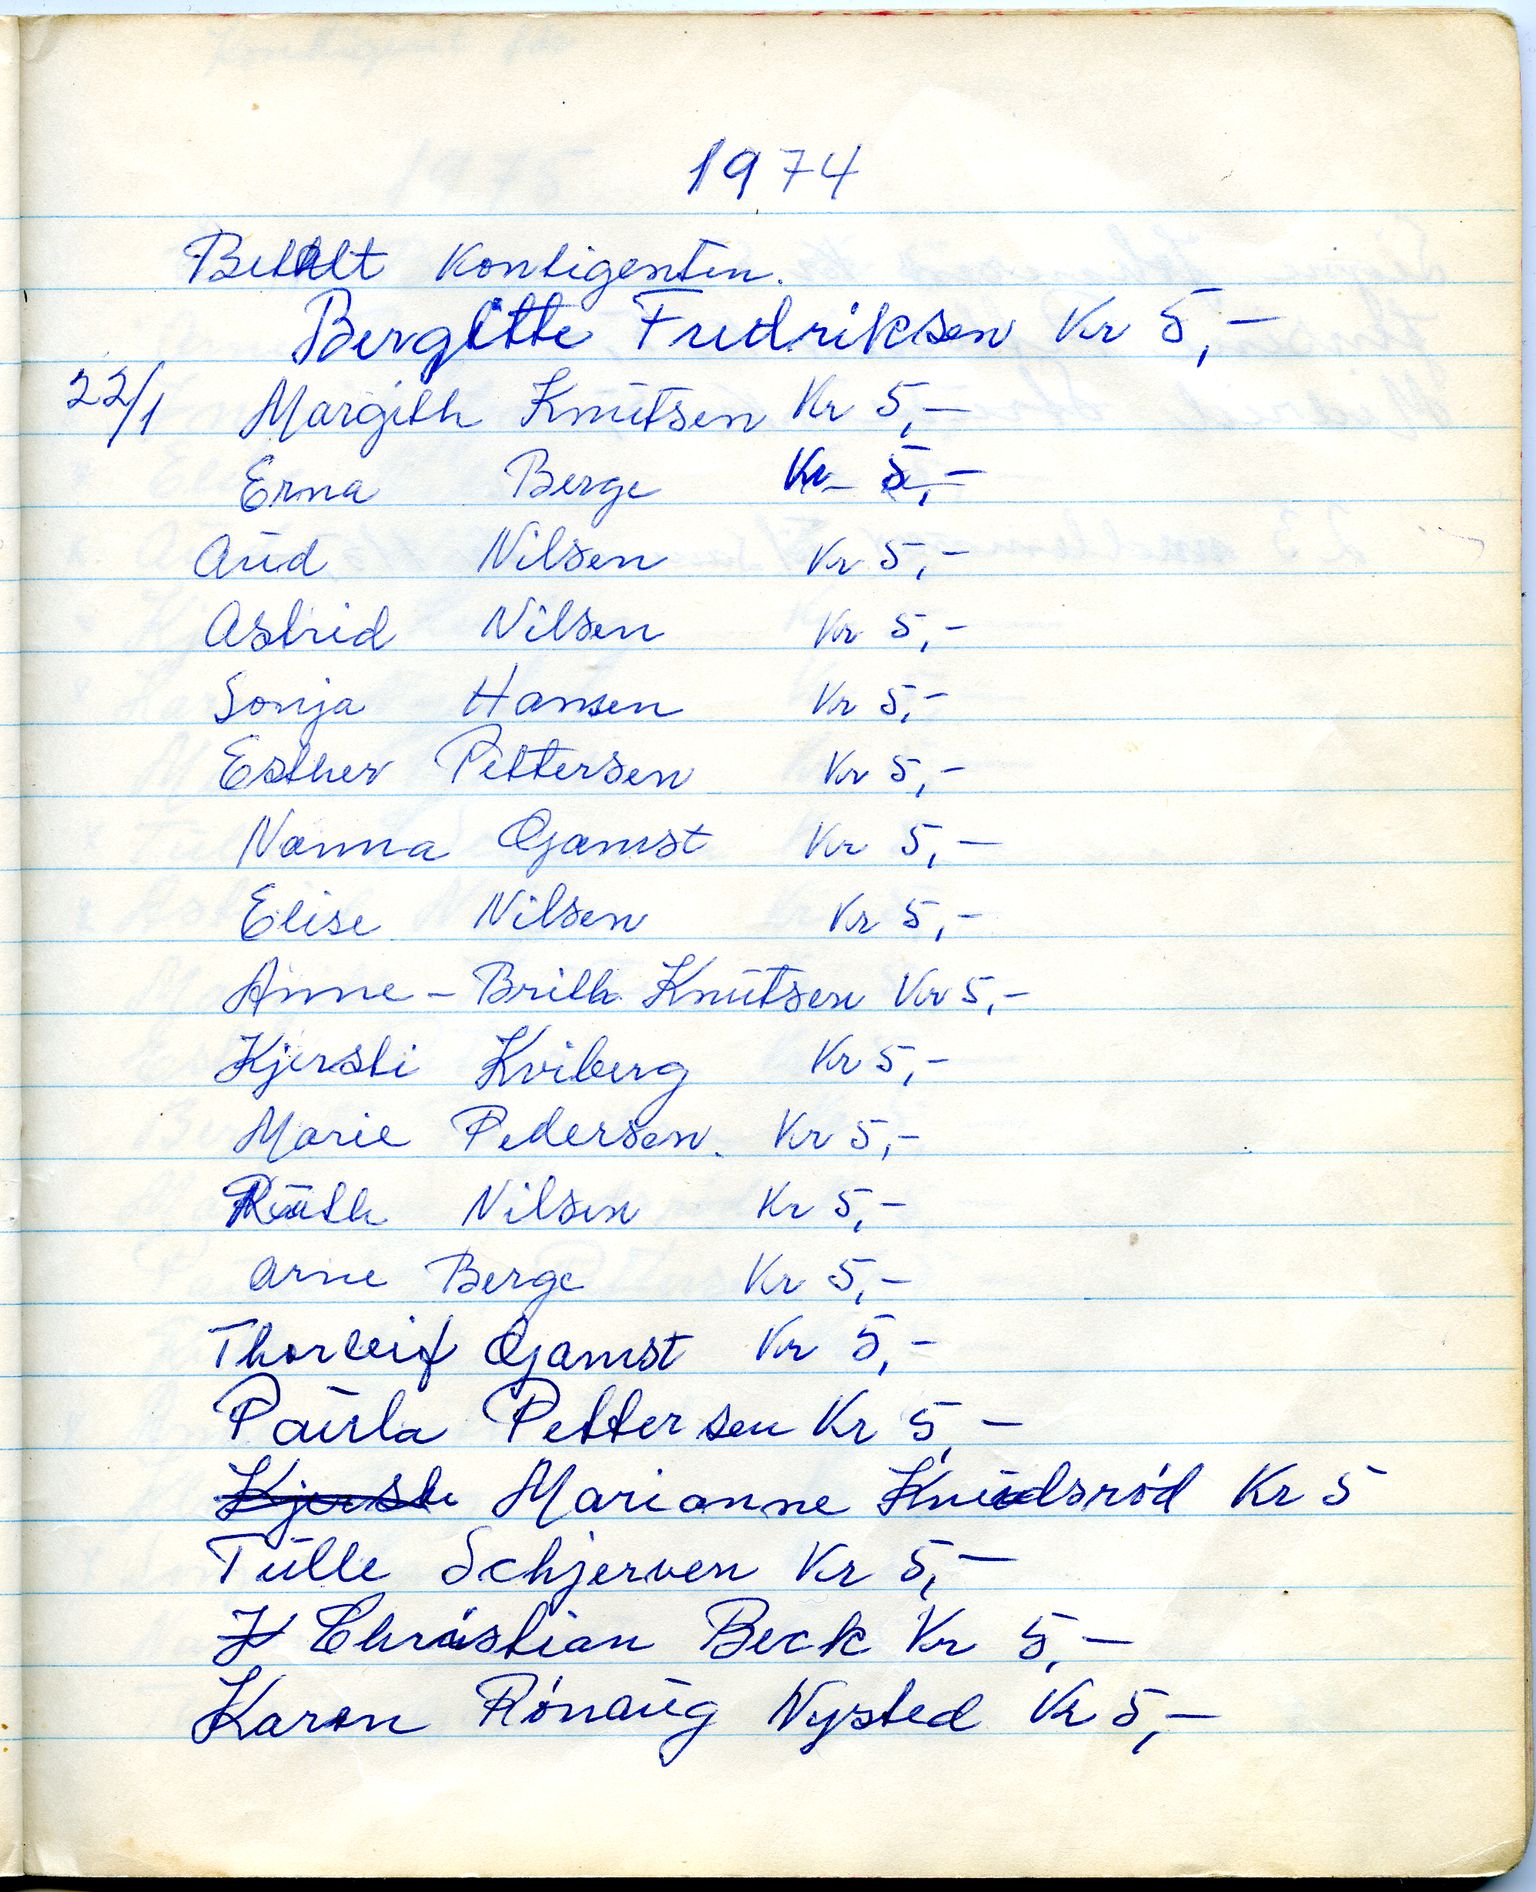 1974
Betalt Kontigenten.
Bergitte Fredriksen Kr 5,-
22/1 Margith Knutsen Kr 5,-
Erna Berge Kr 5,-
Aud Nilsen Kr 5,-
Astrid Nilsen Kr 5,-
Sonja Hansen Kr 5,-
Esther Pettersen Kr 5,-
Nanna Gjamst Kr 5,-
Elise Nilsen Kr 5,-
Anne-Brith Knutsen Kr 5,-
Kjersti Kviberg Kr 5,-
Marie Pedersen. Kr 5,-
Ruth Nilsen Kr 5,-
Arne Berge Kr 5,-
Thorleif Gjamst Kr 5,-
Paula Pettersen Kr 5,-
Kjersti Marianne Knudsród Kr 5
Tulle Schjerven Kr 5,-
Christian Beck Kr 5,-
Karen Rónaug Nysted Kr 5,-